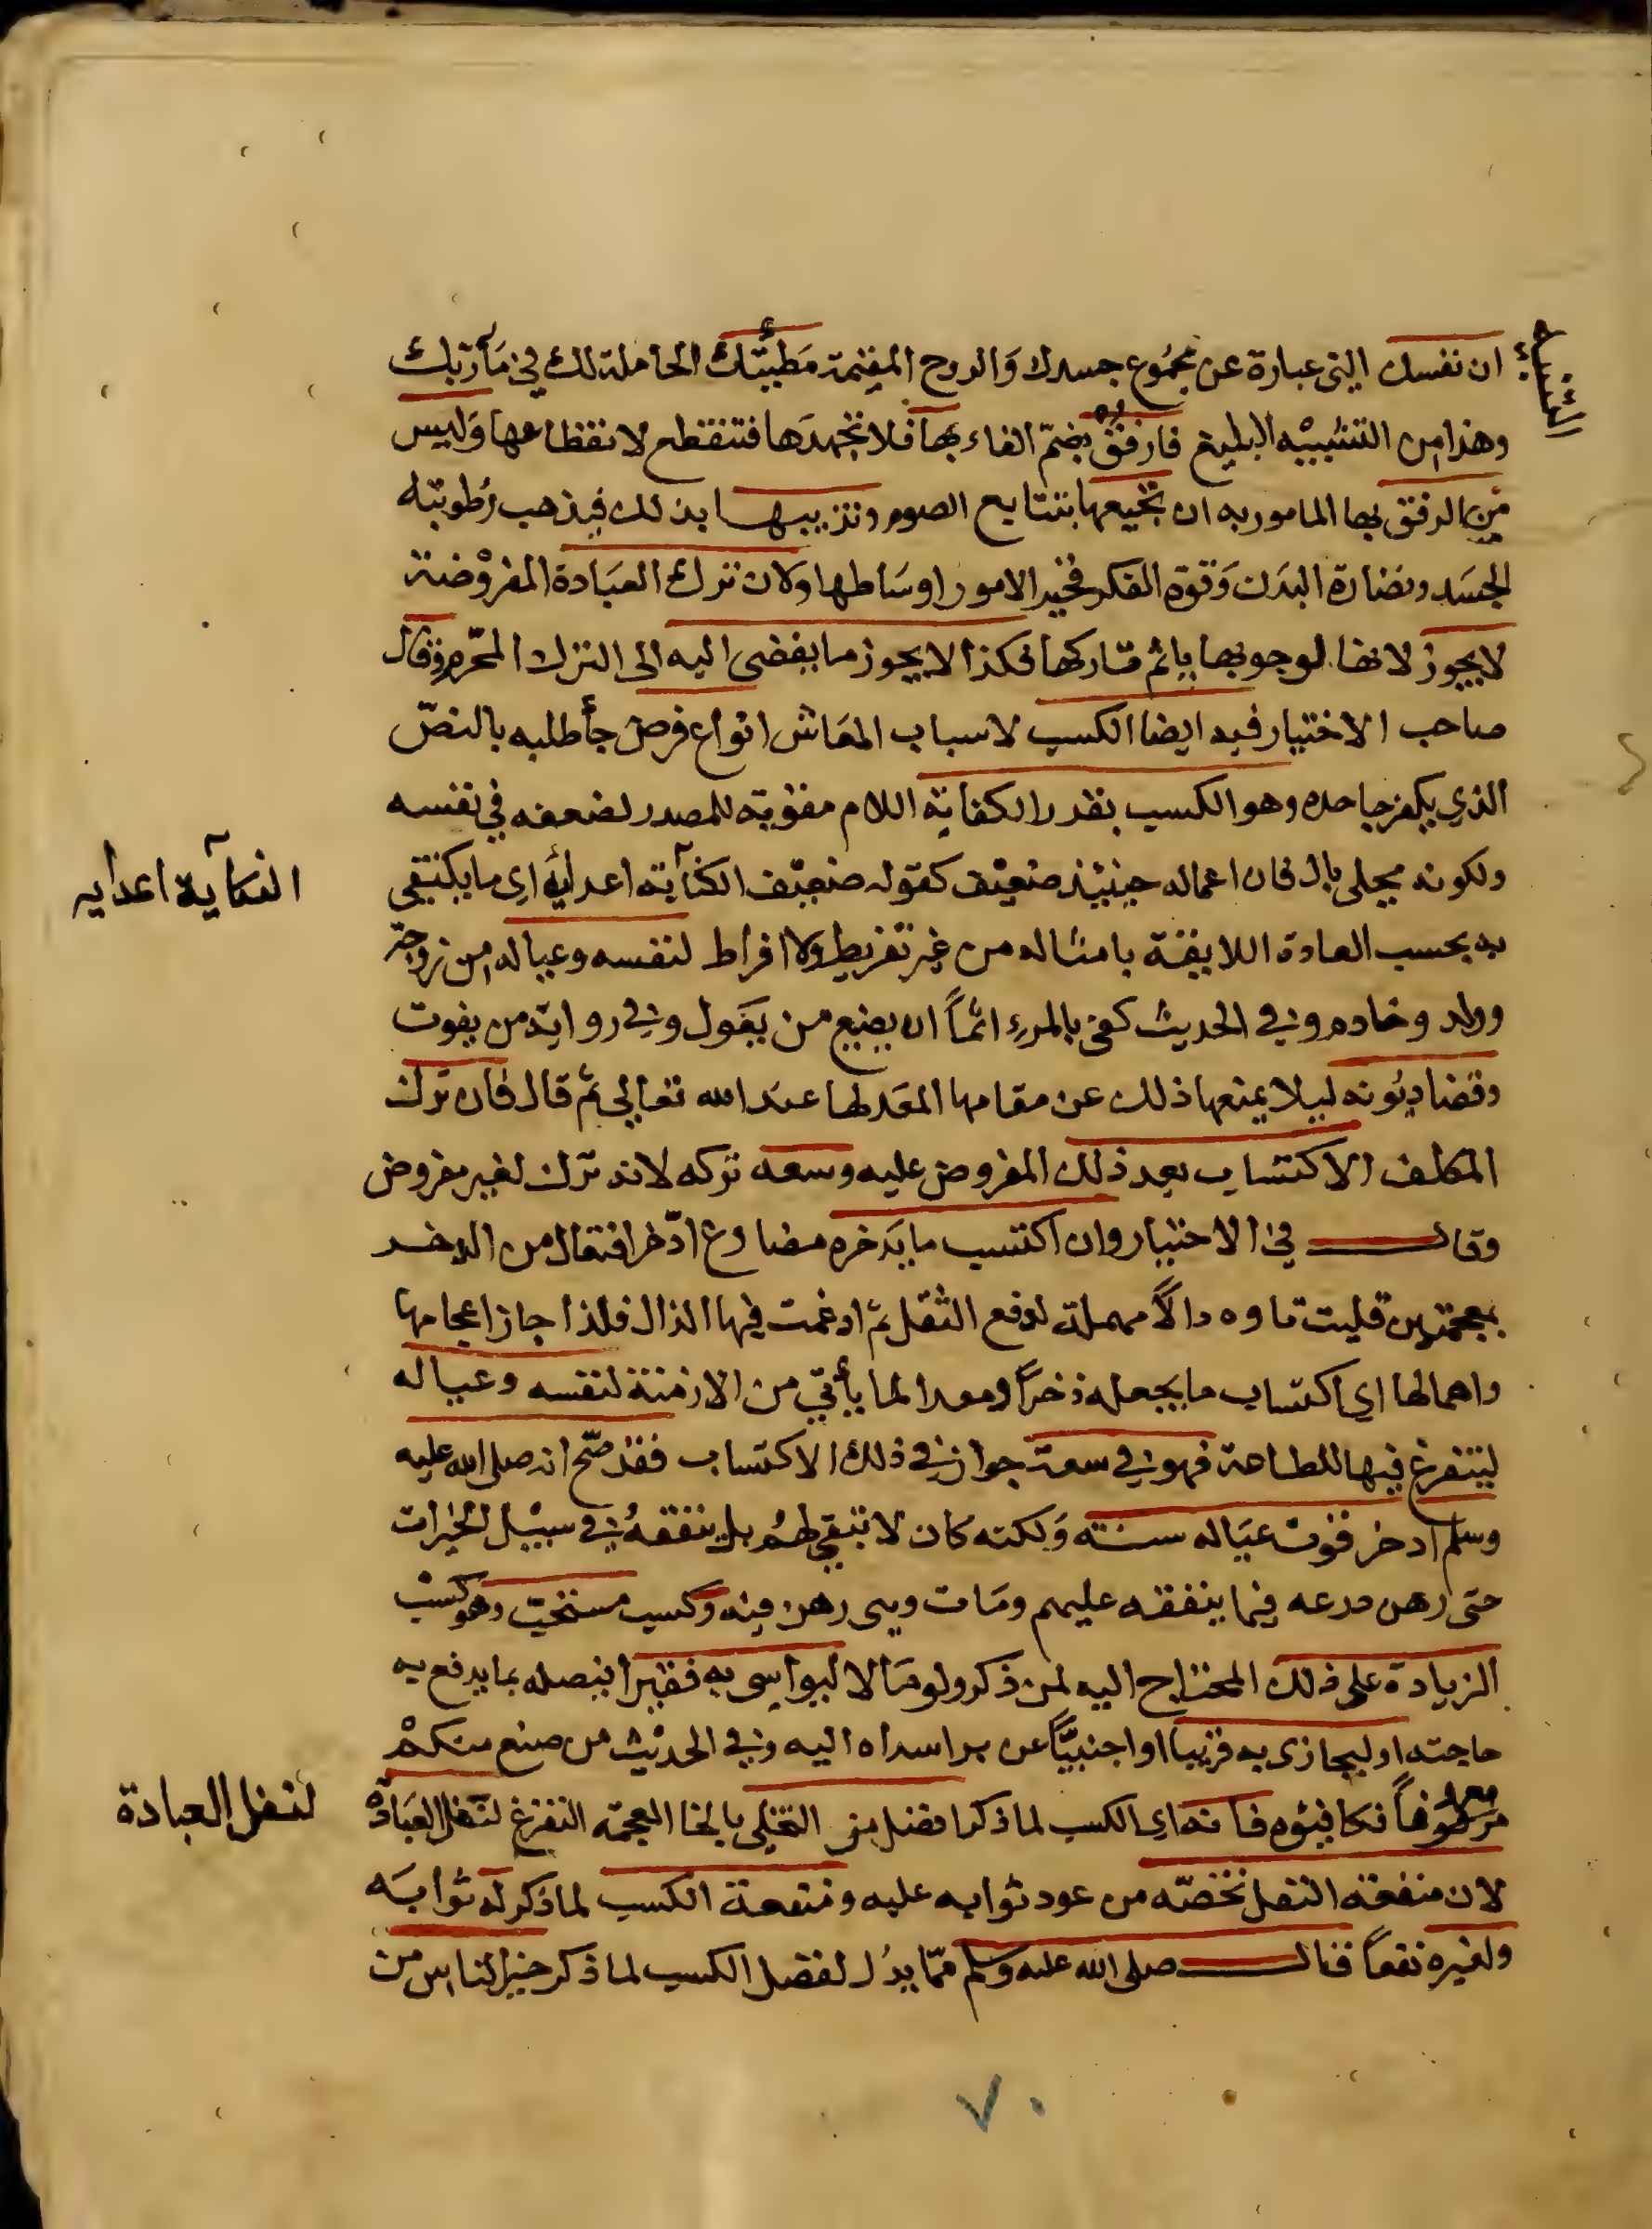 ان نفسك التي عبارة عن مجموع جسدك والروح المقيمة مطيتك الحاملة لك في مآربك
وهذا من التشبيه البليغ فارفق بضم الفاء بها فلا تجهدها فتنقطع لانقطاعها وليس
من الرفق بها المامور به ان تجيعها بتتابع الصوم وتذيبها بذلك فيذهب رطوبته
الجسد ونضارة البدن وقوة الفكر فخير الامور اوساطها ولان ترك العبادة المفروضة
لا يجوز لانها لوجوبها ياثم تاركها فكذا لا يجوز ما يفضى اليه الى الترك المحرم وقال
صاحب الاختيار فيه ايضا الكسب لاسباب المعاش انواع فرض جأ طلبه بالنص
الذي يكفر جاحده وهو الكسب بقدر الكفاية اللام مقوية للمصدر لضعفه في نفسه
ولكونه محلى بال فان اعماله حينئذ ضعيف كقوله ضعيف النكآية اعدائه اي ما يكتفي
به بحسب العادة اللايقة بامثاله من غير تفريط ولا افراط لنفسه وعياله من زوجة
وولد وخادم وفي الحديث كفى بالمرء اثماً ان يضيع من يعول وفي رواية من يقوت
وقضا ديونه ليلا يمنعها ذلك عن مقامها المعد لها عند الله تعالى ثم قال فان ترك
المكلف الاكتساب بعد ذلك المفروض عليه وسعه تركه لانه ترك لغير مفروض
وقال في الاختيار وان اكتسب ما يدخره مضارع ادّخر افتعال من الذخر
بمعجمتين قلبت تاوه دالاً مهملة لدفع الثقل ثم ادغمت فيها الذال فلذا جاز اعجامها
واهمالها اي اكتساب ما يجعله ذخراً ومعدا لما يأتي من الازمنة لنفسه وعياله
ليتفرغ فيها للطاعة فهو في سعة جواز في ذلك الاكتساب فقد صح انه صلى الله عليه
وسلم ادخر قوت عياله سنته ولكنه كان لا تبقي لهم بل ينفقه في سبيل الخيرات
حتى رهن درعه فيما ينفقه عليهم ومات وهي رهن فيه وكسب مستحب وهو كسب
الزيادة على ذلك المحتاج اليه لمن ذكر ولو مآلا ليواسي به فقيرا يتصله بما يدفع به
حاجته او ليجازي به قريبا او اجنبيًّا عن بر اسداه اليه وفي الحديث من صنع منكم
معروفاً فكافيئوه فانه اي الكسب لما ذكر افضل من التخلي بالخا المعجمة التفرغ لنفل العبادة
لان منفعة النفل تخصّه من عود ثوابه عليه ومنفعة الكسب لما ذكر له ثوابه
ولغيره نفعاً فقال صلى الله عليه وسلم ممّا يدل لفضل الكسب لما ذكر خير الناس من
النكآية اعدايه
لنفل العبادة
٧٠